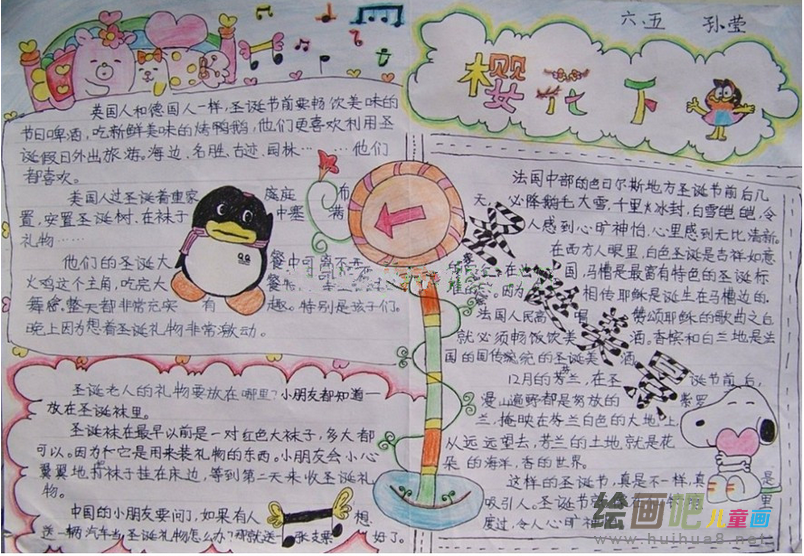 六.五 孙莹
樱花下
英国人和德国人一样,圣诞节前要畅饮美味的
节日啤酒,吃新鲜美味的烤鸭鹅,他们更喜欢利用圣
诞假日外出旅游。海边、名胜、古迹、园林……他们
都喜欢。
英国人过圣诞着重家庭庭布
置,安置圣诞树,在袜子中塞满
礼物……
他们的圣诞大餐中可离不
火鸡这个主角,吃完大餐
整天都非常充实有趣。特别是孩子们。
晚上因为想着圣诞礼物非常激动。
圣诞老人的礼物要放在哪里?小朋友都知道一
放在圣诞袜里。
圣诞袜在最早以前是一对红色大袜子,多大都
可以。因为它是用来装礼物的东西。小朋友会小心
翼翼地将袜子挂在床边,等到第二天来收圣诞礼
物。
中国的小朋友要问了,如果有人想
送一辆汽车当圣诞礼物怎么办?那就送一张支票好了。
法国中部的色日尔斯地方圣诞节前后几
天,必降鹅毛大雪,千里冰封,白雪皑皑,令
人感到心旷神怡,心里感到无比清新。
在西方人眼里,白色圣诞是吉祥如意
在也国,马槽是最富有特色的圣诞标
因为相传耶稣是诞生在马槽边的.
法国人民高唱赞颂耶稣的歌曲之后
就必须畅饮美酒,香槟和白兰地是法
国的国传统的圣诞美酒
12月的芳兰,在圣诞节前后,
漫山遍野都是努放的紫罗
兰,掩映在芳兰白色的大地上
从远远望去,芳兰的土地就是花
朵的海洋,香的世界。
这样的圣诞节,真是不一样,真是
吸引人。圣诞节就在里
度过,令人心旷神
绘画吧 儿童画
www.huihua8.net